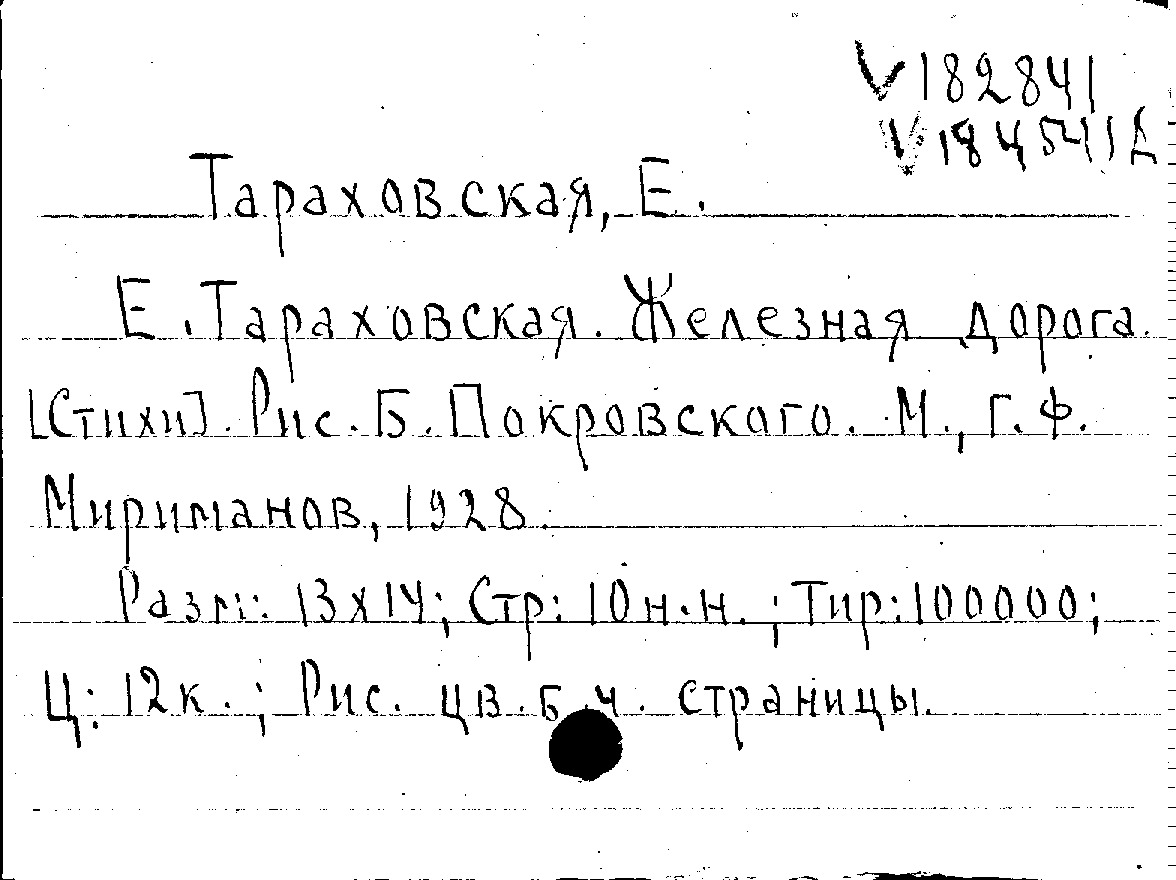 V 182841
V 184541 Д
Тараховская, Е.
Е. Тараховская. Железная дорога.
[Стихи]. Рис. Б. Покровского. М., Г.Ф.
Мириманов, 1928.
Разм: 13х14; Стр: 10 н.н.; Тир: 100000;
Ц: 12к.; Рис. цв. б. ч. страницы.